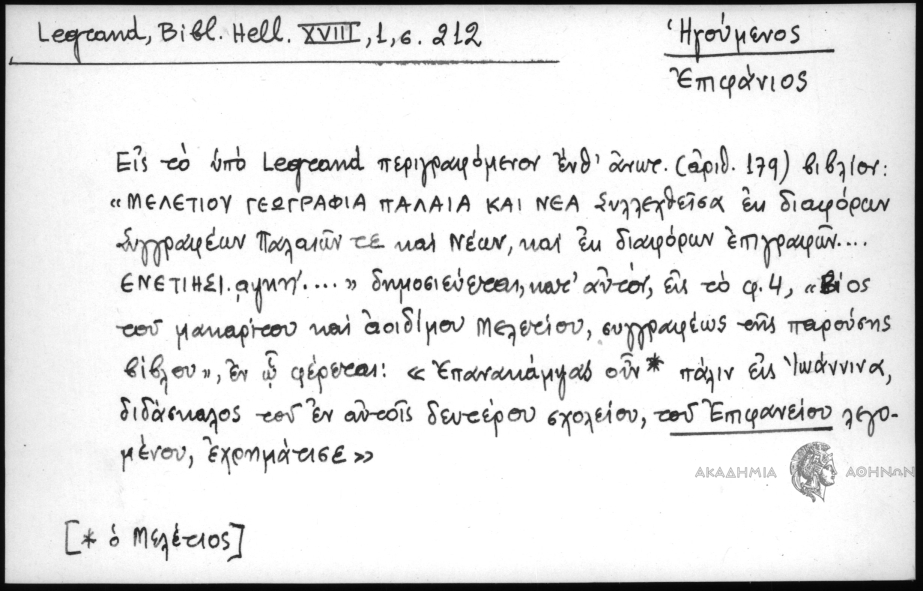 Legrand, Bibl. Hell. XVIII, 1, σ. 212
Ἡγούμενος
Ἐπιφάνιος
Εἰς τὸ ὑπὸ Legrand περιγραφόμενον ἔνθ' ἀνωτ. (ἀριθ. 179) βιβλίον:
«ΜΕΛΕΤΙΟΥ ΓΕΩΓΡΑΦΙΑ ΠΑΛΑΙΑ ΚΑΙ ΝΕΑ Συλλεχθεῖσα ἐκ διαφόρων
Συγγραφέων Παλαιῶν τε καὶ Νέων, καὶ ἐκ διαφόρων ἐπιγραφῶν....
ΕΝΕΤΙΗΣΙ. ͵αψκη'....» δημοσιεύεται, κατ' αὐτόν, εἰς τὸ φ. 4, «Βίος
τοῦ μακαρίτου καὶ ἀοιδίμου Μελετίου, συγγραφέως τῆς παρούσης
βίβλου», ἐν ᾧ φέρεται: «Ἐπανακάμψας οὖν* πάλιν εἰς Ἰωάννινα,
διδάσκαλος τοῦ ἐν αὐτοῖς δευτέρου σχολείου, τοῦ Ἐπιφανείου λεγο-
μένου, ἐχρημάτισε»
ΑΚΑΔΗΜΙΑ ΑΘΗΝΩΝ
[* ὁ Μελέτιος]